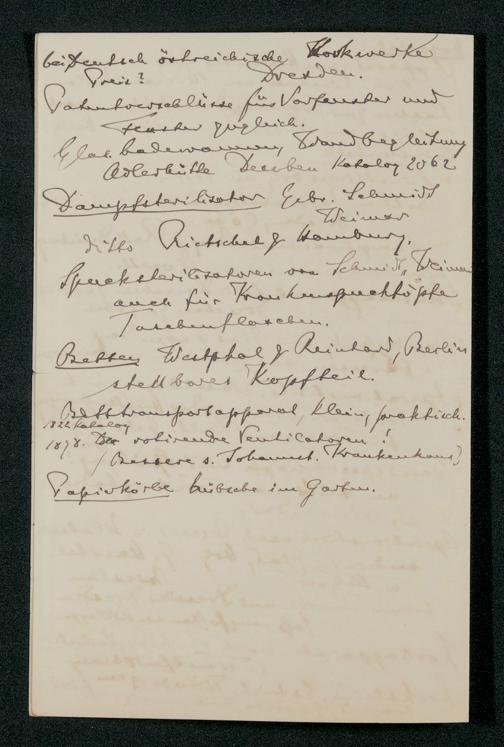 bei Deutsch östreichische Korkwerke
Preis? Dresden.
Patentverschlüsse für Vorfenster und
Fenster zugleich.
Glas badewannen, Wandbegleitung
Adlerhütte Katalog 2062
Dampfsterilisator Gebr. Schmidt
Weimar
ditto Rietschel & Hamburg.
Specksterilisatoren von Schmidt, Weimar
auch für Krankenspucktöpfe
Taschenflaschen.
Betten Westphal & Reinhard, Berlin
stellbares Kopfteil.
Betttransportapparat, klein, praktisch.
1822 Katalog
1898. Der rotirende Ventilatoren!
(Bessere s. Johannst. Krankenhaus)
Papierkörbe hübsche im Garten.